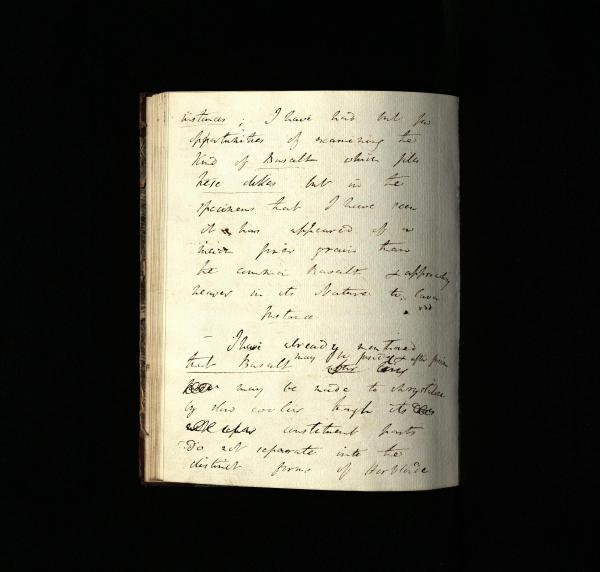 instances; I have had but few
opportunities of examining the
kind of Basalt which fills
these dikes but in the
specimens that I have seen
it has appeared of a
much finer grain than
the common Basalt & approaching
nearer in its Nature to lava
Instance
— I have already mentioned
that Basalt may by &
may be made to chrystalise
by slow cooling though its
constituent parts
Do not separate into the
distinct forms of Hornblende